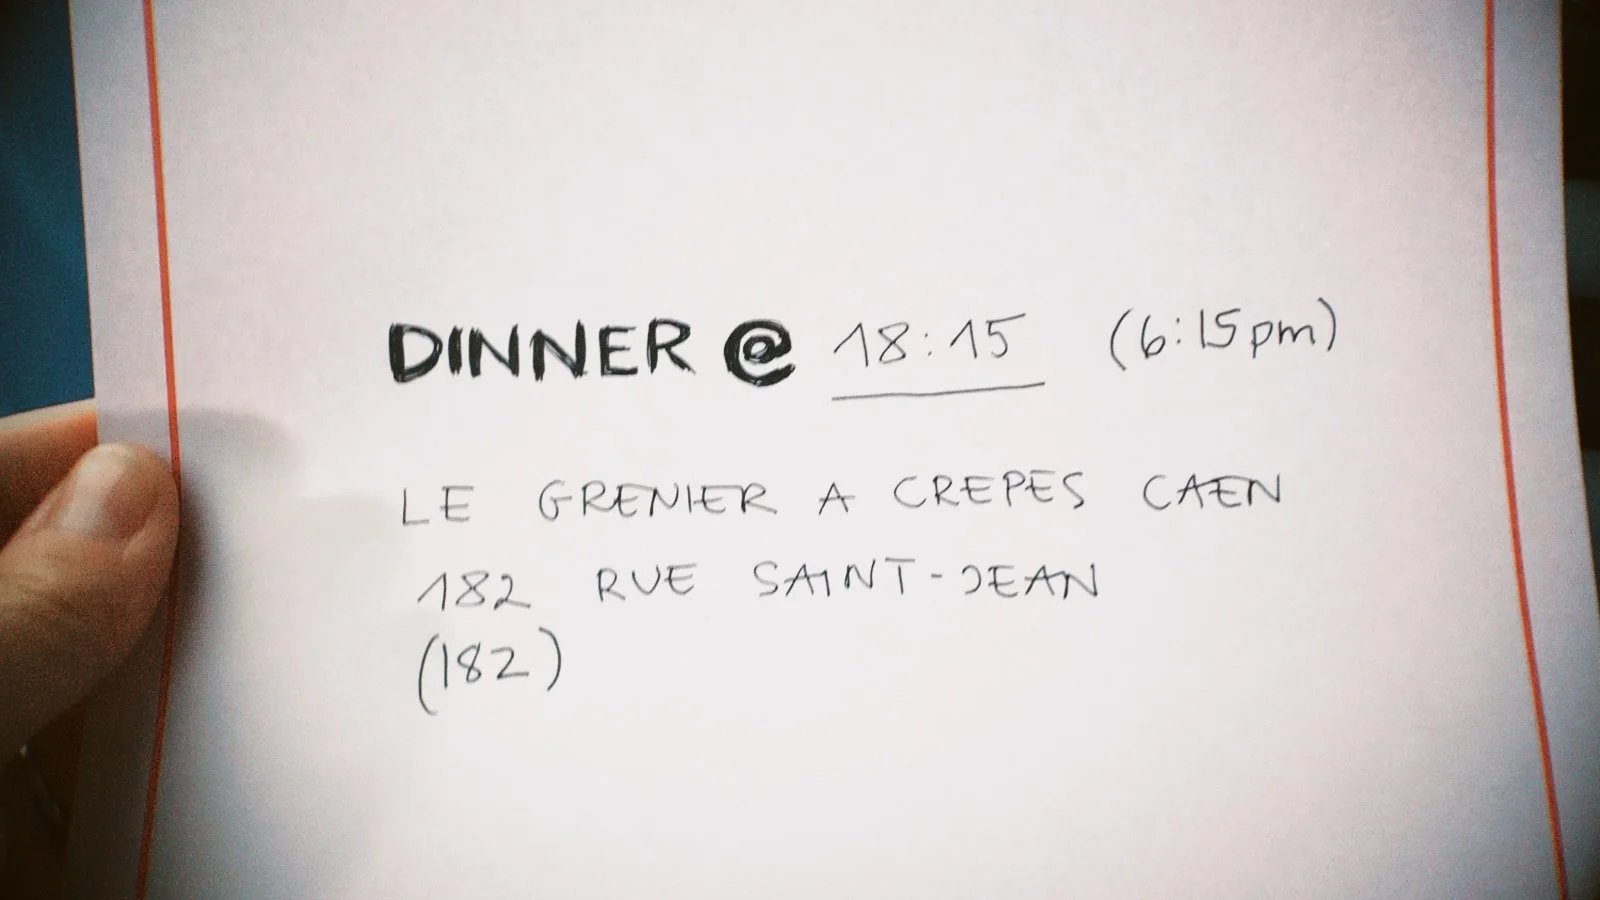 DINNER @ 18:15 (6:15pm)
LE GRENIER A CREPES CAEN
182 RUE SAINT-JEAN
(182)